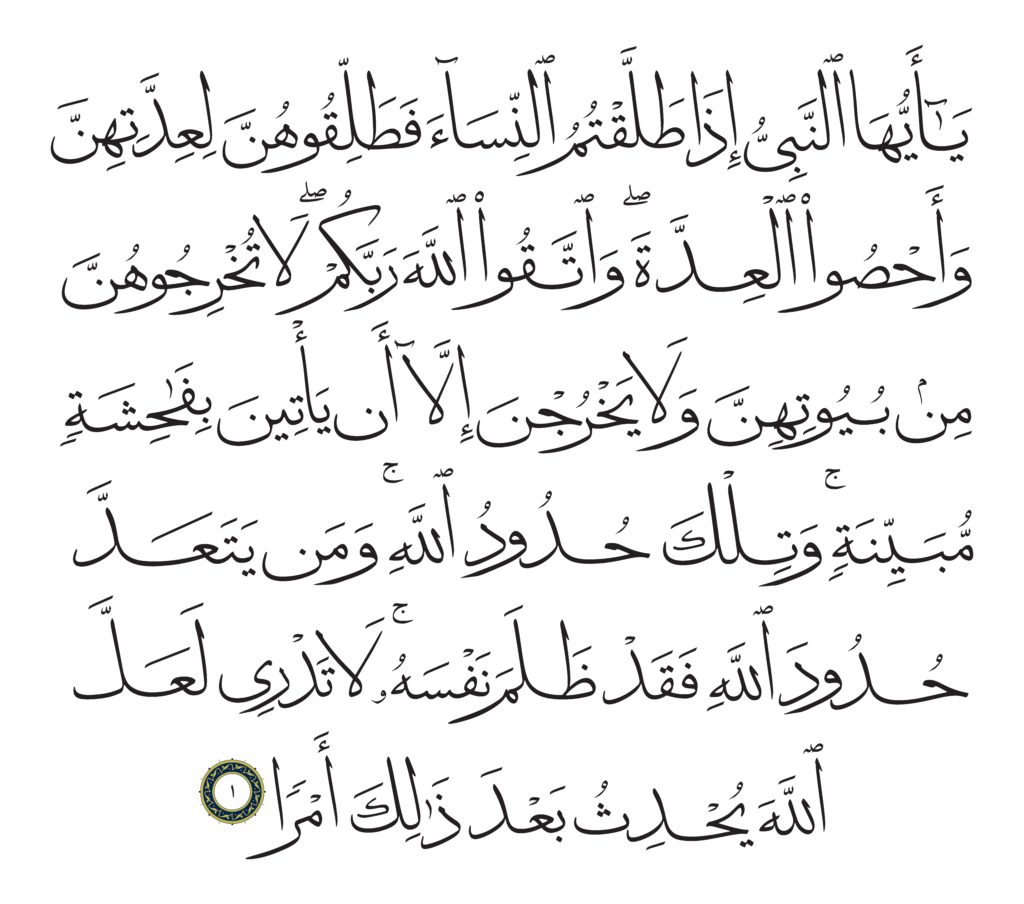 يَـٰٓأَيُّهَا ٱلنَّبِىُّ إِذَا طَلَّقْتُمُ ٱلنِّسَآءَ فَطَلِّقُوهُنَّ لِعِدَّتِهِنَّ
وَأَحْصُوا۟ ٱلْعِدَّةَ ۖ وَٱتَّقُوا۟ ٱللَّهَ رَبَّكُمْ ۖ لَا تُخْرِجُوهُنَّ
مِنۢ بُيُوتِهِنَّ وَلَا يَخْرُجْنَ إِلَّآ أَن يَأْتِينَ بِفَـٰحِشَةٍ
مُّبَيِّنَةٍ ۚ وَتِلْكَ حُدُودُ ٱللَّهِ ۚ وَمَن يَتَعَدَّ
حُدُودَ ٱللَّهِ فَقَدْ ظَلَمَ نَفْسَهُۥ ۚ لَا تَدْرِى لَعَلَّ
ٱللَّهَ يُحْدِثُ بَعْدَ ذَٰلِكَ أَمْرًا ١